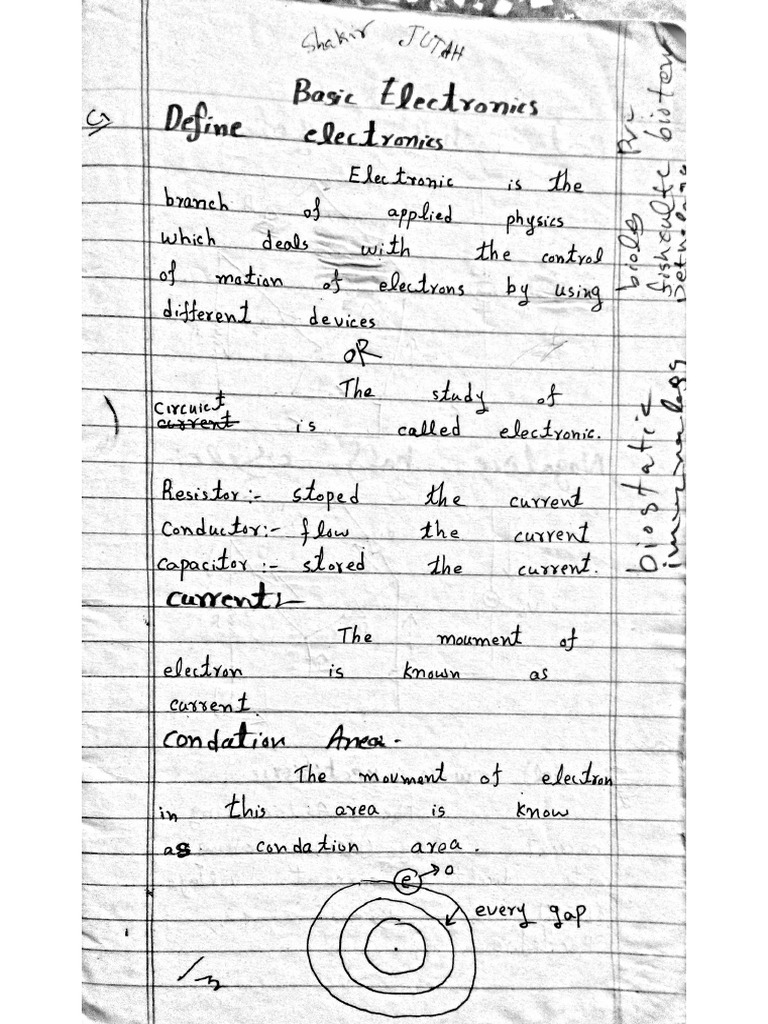 Shakir JUTAH
Basic Electronics
Define electronics
Electronic is the
branch of applied physics
which deals with the control
of motion of electrons by using
different devices
OR
The study of
Circuict
current is called electronic.
Resistor:- stoped the current
Conductor:- flow the current
capacitor:- stored the current.
current:-
The moument of
electron is known as
current.
Condation Area-
The moument of electron
in this area is know
as condation area.
e → o
every gap
biostatic